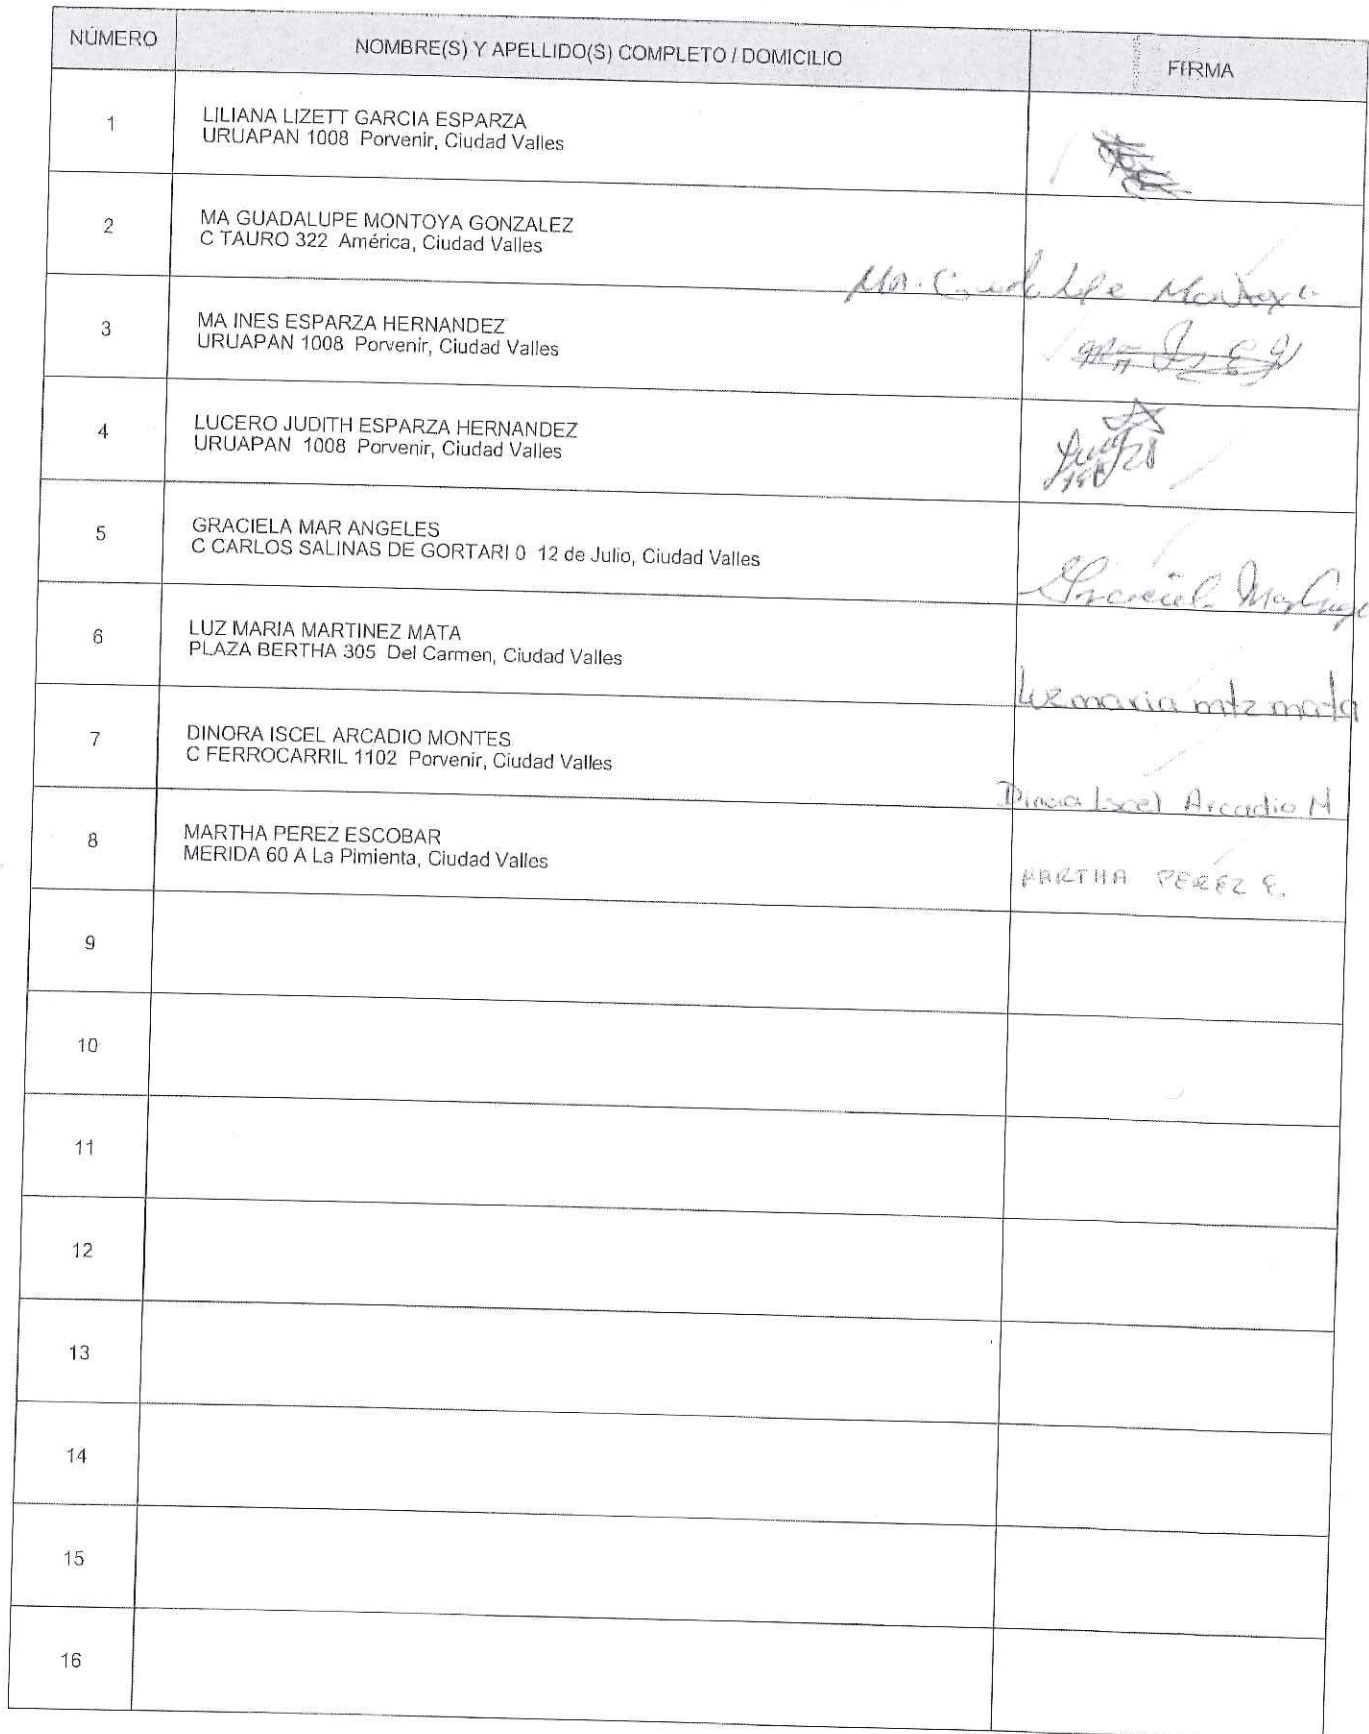 NÚMERO
NOMBRE(S) Y APELLIDO(S) COMPLETO / DOMICILIO
FIRMA
1
LILIANA LIZETT GARCIA ESPARZA
URUAPAN 1008 Porvenir, Ciudad Valles
2
MA GUADALUPE MONTOYA GONZALEZ
C TAURO 322 América, Ciudad Valles
3
MA INES ESPARZA HERNANDEZ
URUAPAN 1008 Porvenir, Ciudad Valles
4
LUCERO JUDITH ESPARZA HERNANDEZ
URUAPAN 1008 Porvenir, Ciudad Valles
5
GRACIELA MAR ANGELES
C CARLOS SALINAS DE GORTARI 0 12 de Julio, Ciudad Valles
6
LUZ MARIA MARTINEZ MATA
PLAZA BERTHA 305 Del Carmen, Ciudad Valles
Luz maria mtz mata
7
DINORA ISCEL ARCADIO MONTES
C FERROCARRIL 1102 Porvenir, Ciudad Valles
Iscel Arcadio M
8
MARTHA PEREZ ESCOBAR
MERIDA 60 A La Pimienta, Ciudad Valles
MARTHA PEREZ E.
9
10
11
12
13
14
15
16